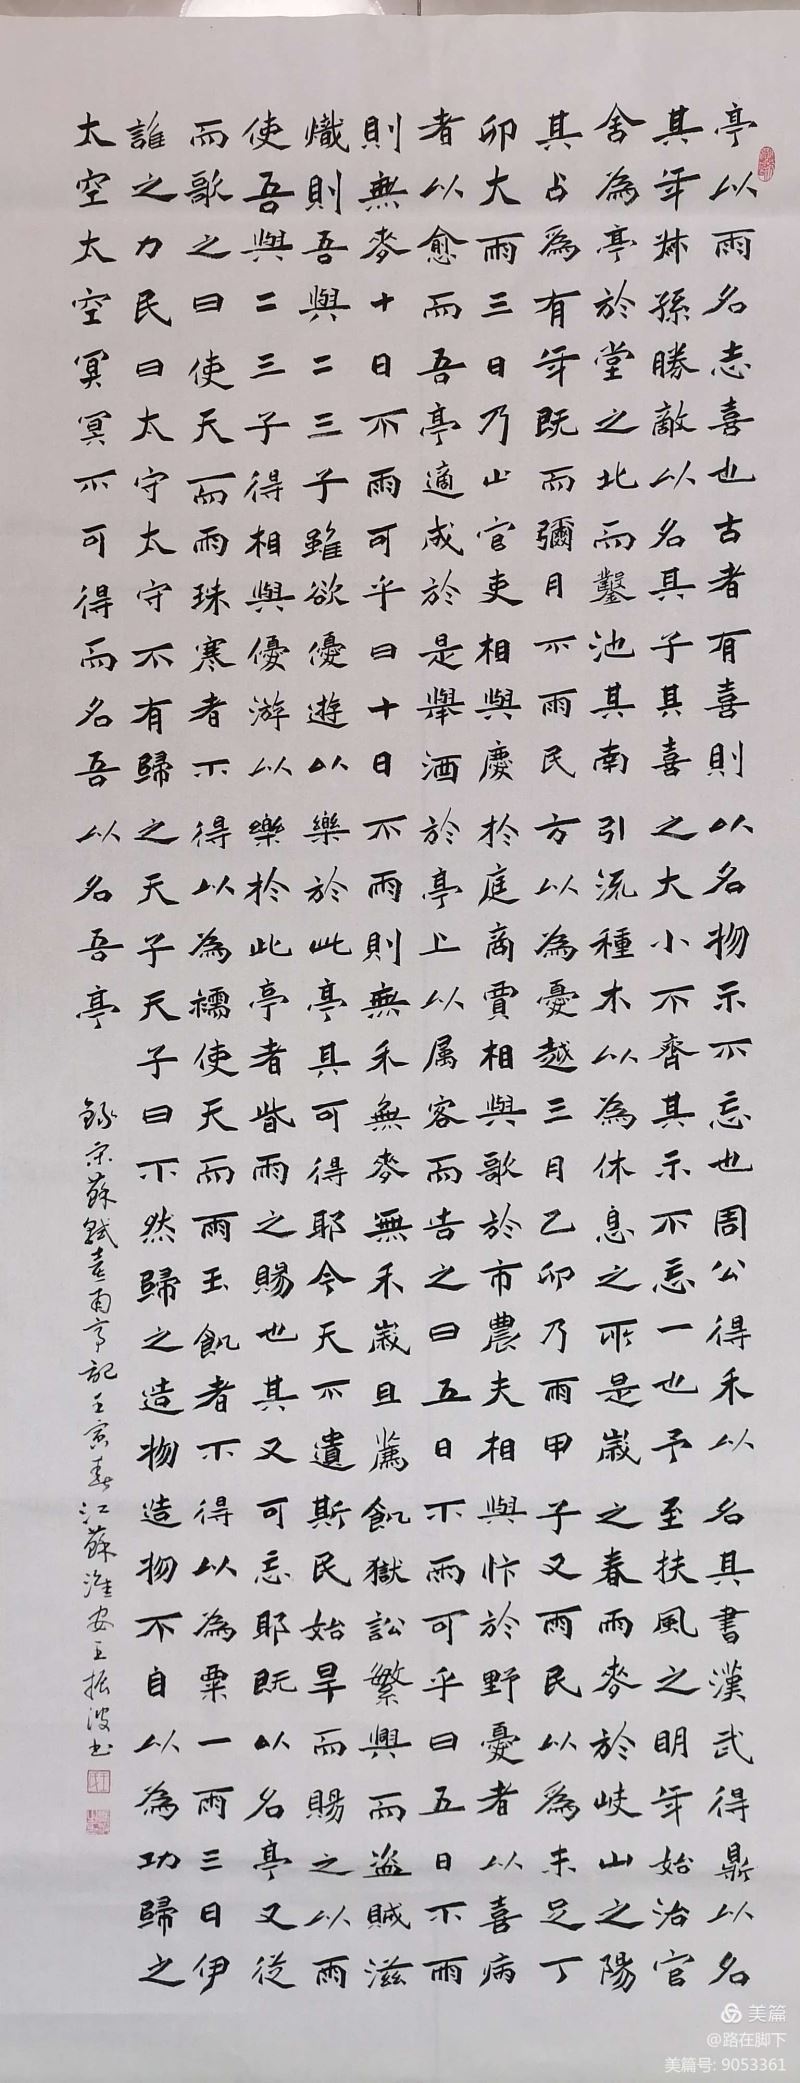 亭以雨名志喜也古者有喜則以名物示不忘也周公得禾以名其書漢武得鼎以名
其年叔孫勝敵以名其子其喜之大小不齊其示不忘一也予至扶風之明年始治官
舍為亭於堂之北而鑿池其南引流種木以為休息之所是歲之春雨麥於岐山之陽
其占為有年既而彌月不雨民方以為憂越三月乙卯乃雨甲子又雨民以為未足丁
卯大雨三日乃止官吏相與慶於庭商賈相與歌於市農夫相與忭於野憂者以喜病
者以愈而吾亭適成於是舉酒於亭上以属客而告之曰五日不雨可乎曰五日不雨
則無麥十日不雨可乎曰十日不雨則無禾無麥無禾歲且薦飢獄訟繁興而盜賊滋
熾則吾與二三子雖欲優遊以樂於此亭其可得耶今天不遺斯民始旱而賜之以雨
使吾與二三子得相與優游以樂於此亭者皆雨之賜也其又可忘耶既以名亭又從
而歌之曰使天而雨珠寒者不得以為襦使天而雨玉飢者不得以為粟一雨三日伊
誰之力民曰太守太守不有歸之天子天子曰不然歸之造物造物不自以為功歸之
太空太空冥冥不可得而名吾以名吾亭
錄宋蘇軾喜雨亭記壬寅春江蘇淮安王振波書
美篇
@路在脚下
美篇号: 9053361